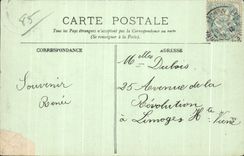 85
CARTE POSTALE
Tous les Pays étrangers n'acceptent pas la Correspondance au recto
(Se renseigner à la Poste)
CORRESPONDANCE
ADRESSE
Melles Dubois
25 Avenue de la
Révolution
à Limoges
Hte Vienne
Souvenir
Renée